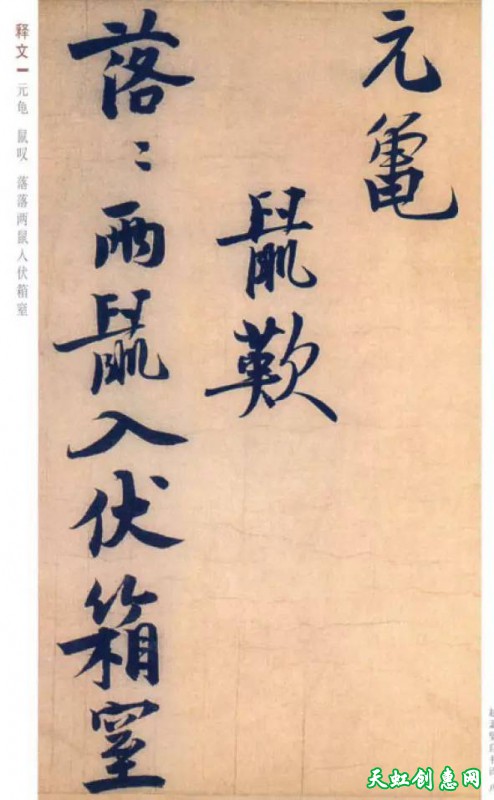 元龜
鼠歎
落〻兩鼠入伏箱窒
释文
元龟 鼠叹 落落两鼠人伏箱窒
天虹创惠网